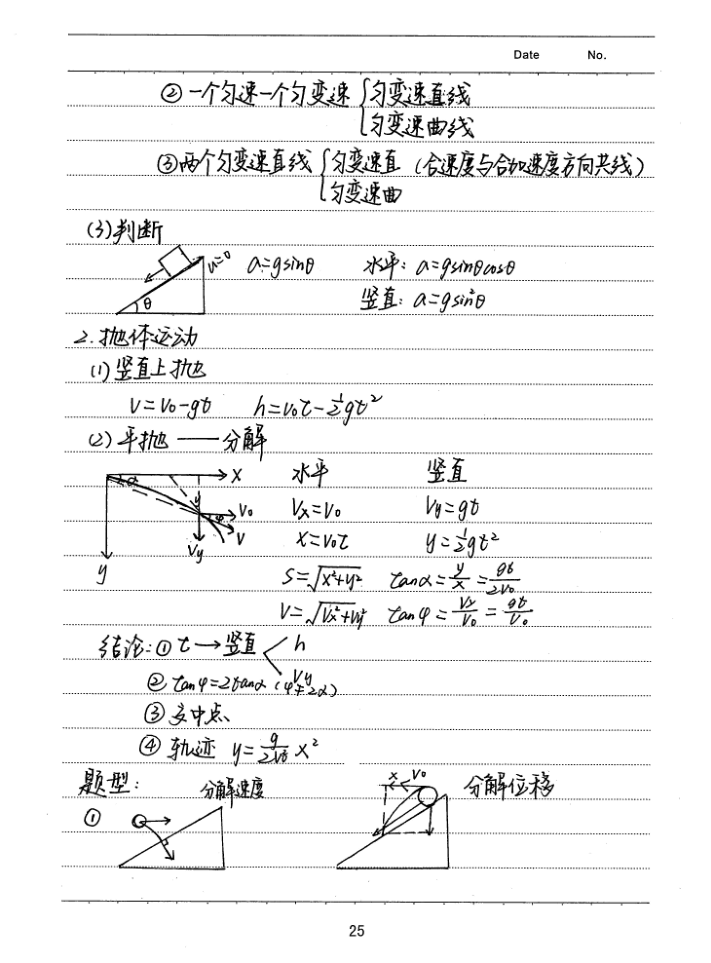 Date No.
② 一个匀速一个匀变速 { 匀变速直线
匀变速曲线
③两个匀变速直线 { 匀变速直 (合速度与合加速度方向共线)
匀变速曲
(3)判断
u=0 a=gsinθ 水平: a=gsinθcosθ
θ 竖直: a=gsin²θ
2.抛体运动
(1)竖直上抛
V=V₀-gt h=V₀t-½gt²
(2)平抛——分解
α X 水平 竖直
y φ V₀ Vx=V₀ Vy=gt
Vy V X=V₀t y=½gt²
y S=√x²+y² tanα=y/x=gt/2V₀
V=√Vx²+Vy² tanφ=Vy/V₀=gt/V₀
结论:①t→竖直 < h
Vy
② tanφ=2tanα (φ≠2α)
③ 交中点、
④ 轨迹 y=g/2V₀² x²
题型: 分解速度 x V₀ 分解位移
①
25